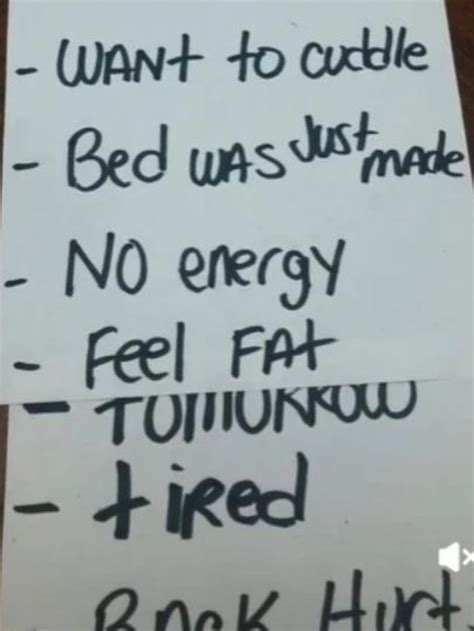 - WANt to cuddle
- Bed WAS Just made
- NO energy
- Feel FAt
- TOMORROW
- tired
Back Hurt